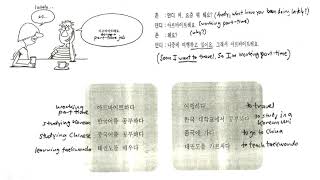 lately?
아르바이트해요
part-time job
존 : 앤디 씨, 요즘 뭐 해요? (Andy, what have you been doing lately?)
앤디 : 아르바이트해요. (working part-time)
존 : 왜요? (why?)
앤디 : 나중에 여행하고 싶어요. 그래서 아르바이트해요.
(Soon I want to travel, so I'm working part-time)
working part-time 아르바이트하다
studying Korean 한국어를 공부하다
studying Chinese 중국어를 공부하다
learning taekwondo 태권도를 배우다
여행하다 to travel
한국 대학교에서 공부하다 to study in a Korean uni
중국에 가다 to go to China
태권도를 가르치다 to teach taekwondo